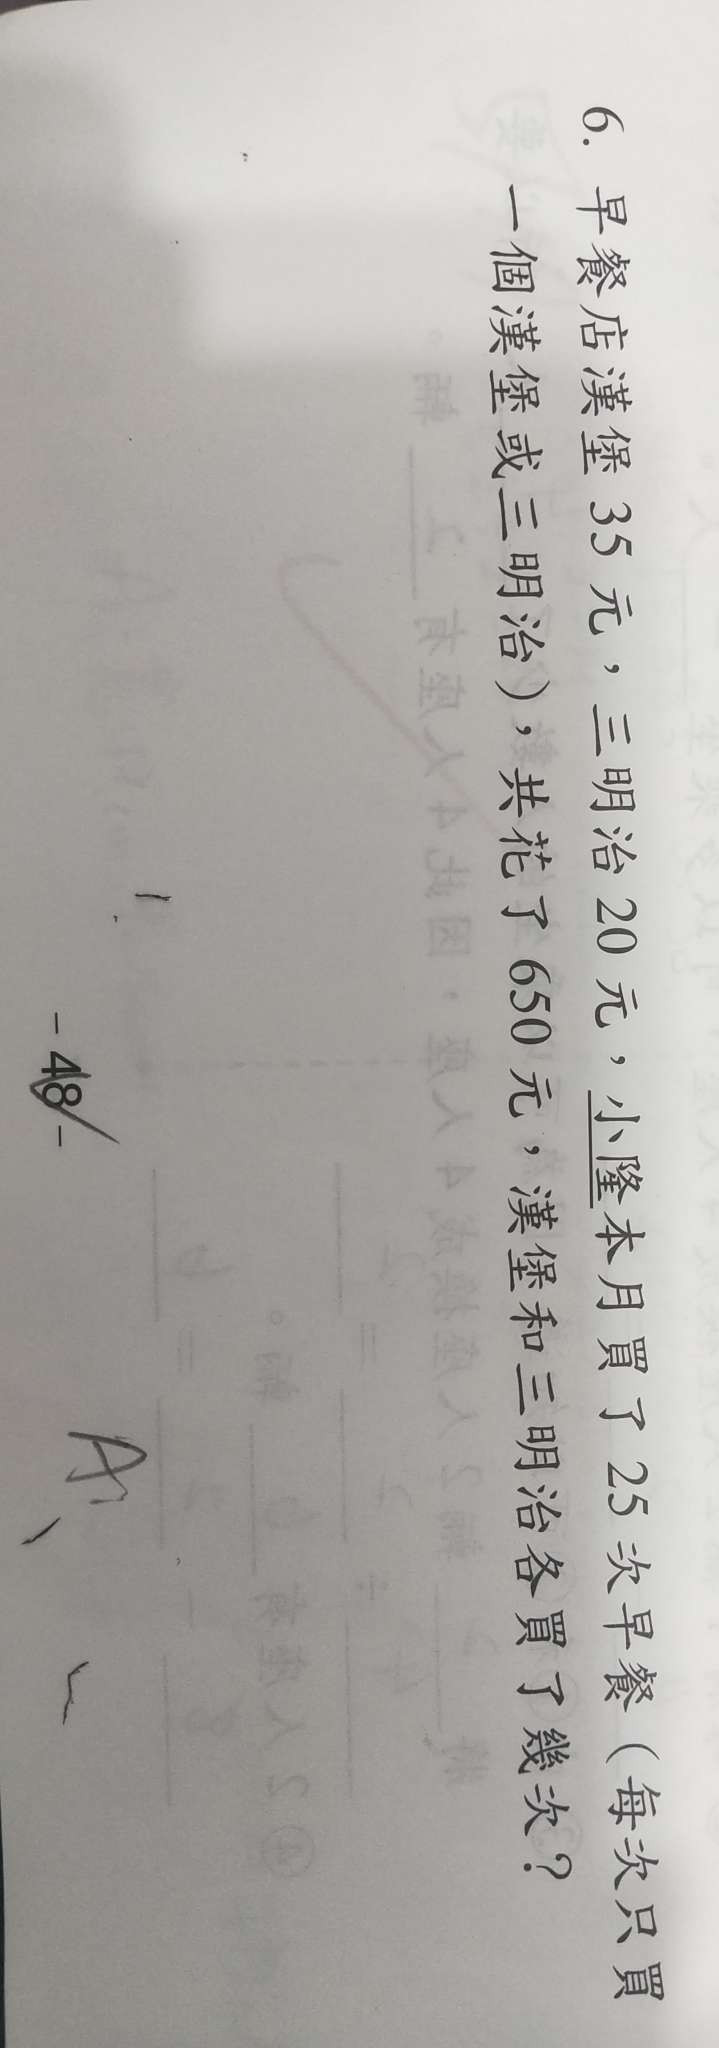 6. 早餐店漢堡 35 元，三明治 20 元，小隆本月買了 25 次早餐（每次只買
一個漢堡或三明治），共花了 650 元，漢堡和三明治各買了幾次？
A
- 48 -